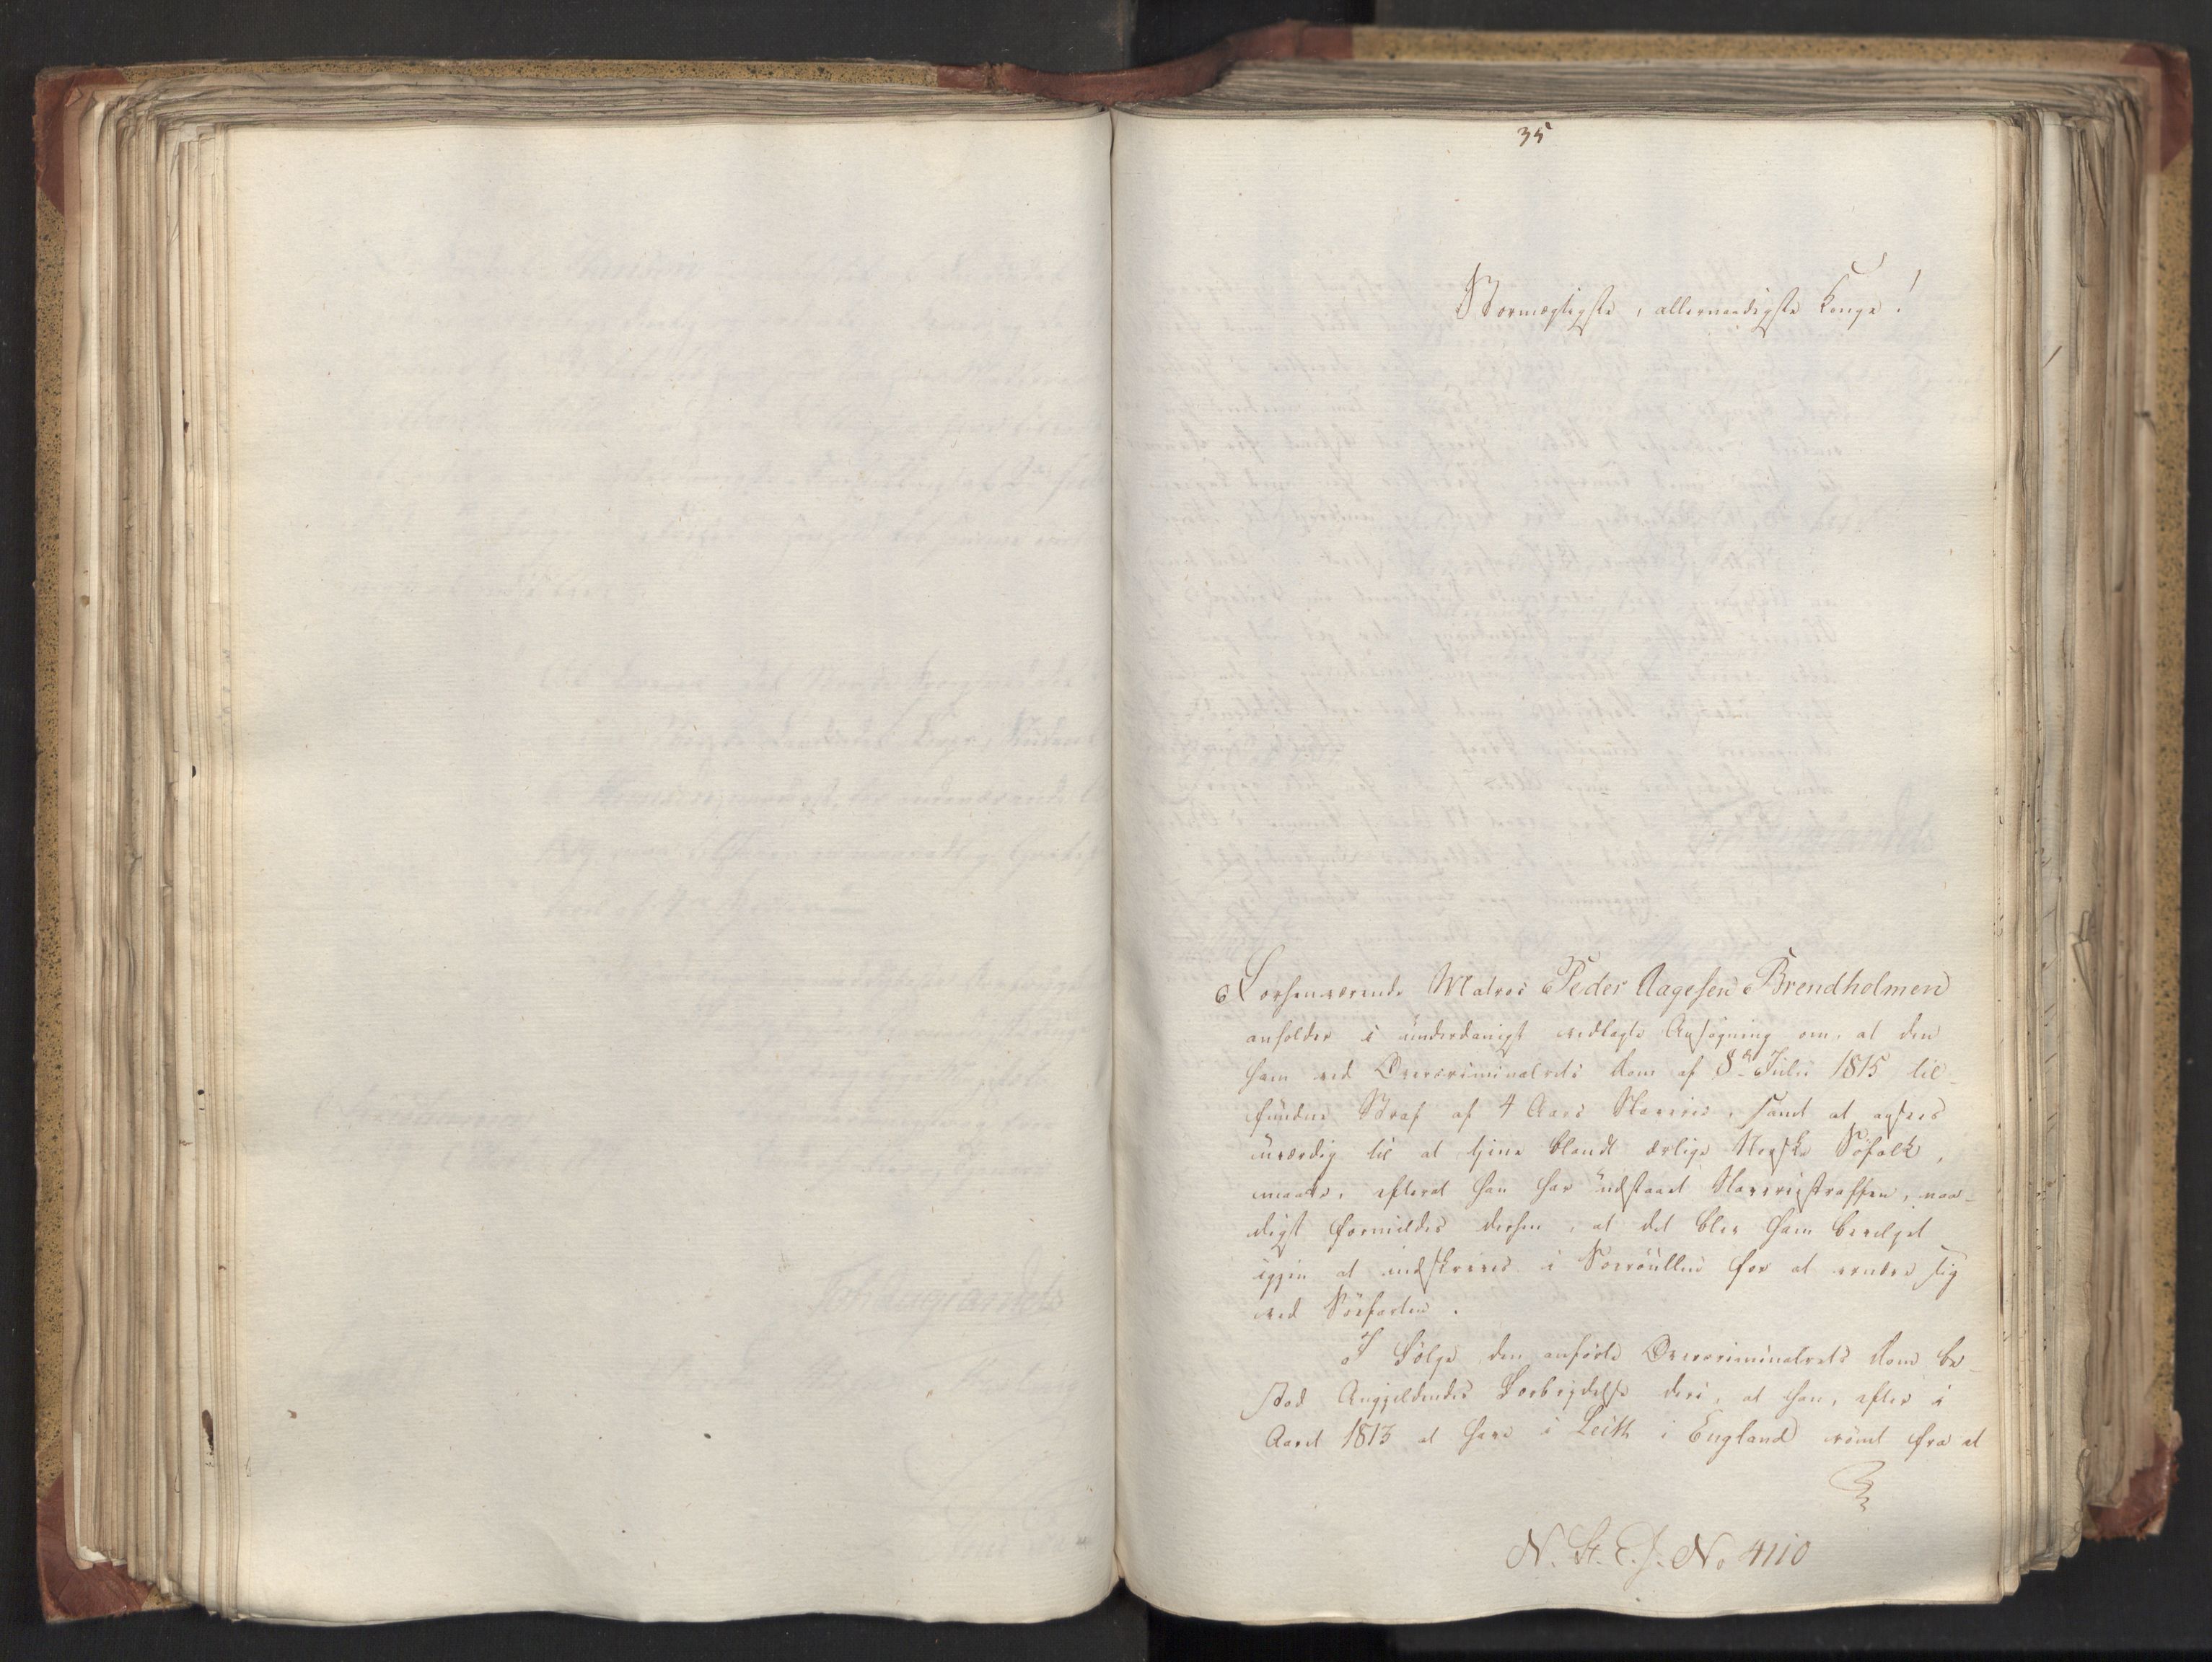 35
Stormægtigste, allernaadigste Konge!
Forhenværende Matros Peder Aagesen Brendholmen
anholder i underdanigst vedlagte Ansøgning om, at den
ham ved Overcriminalrets Dom af 8de Julii 1815 til-
fundne Straf af 4 Aars Slaverie, samt at agtes
uværdig til at tjene blandt ærlige Norske Søfolk,
maate, efterat han har udstaaet Slaveriestraffen, naa-
digst formildes derhen, at det blev ham bevilget
igjen at indskrives i Søerullen for at ernære sig
ved Søefarten.
I Følge den anførte Overcriminalrets Dom be-
stod Angjeldendes Forbrydelse deri, at han, efter i
Aaret 1813 at have i Leith i England rømt fra et
N. St. E. J. No 4110